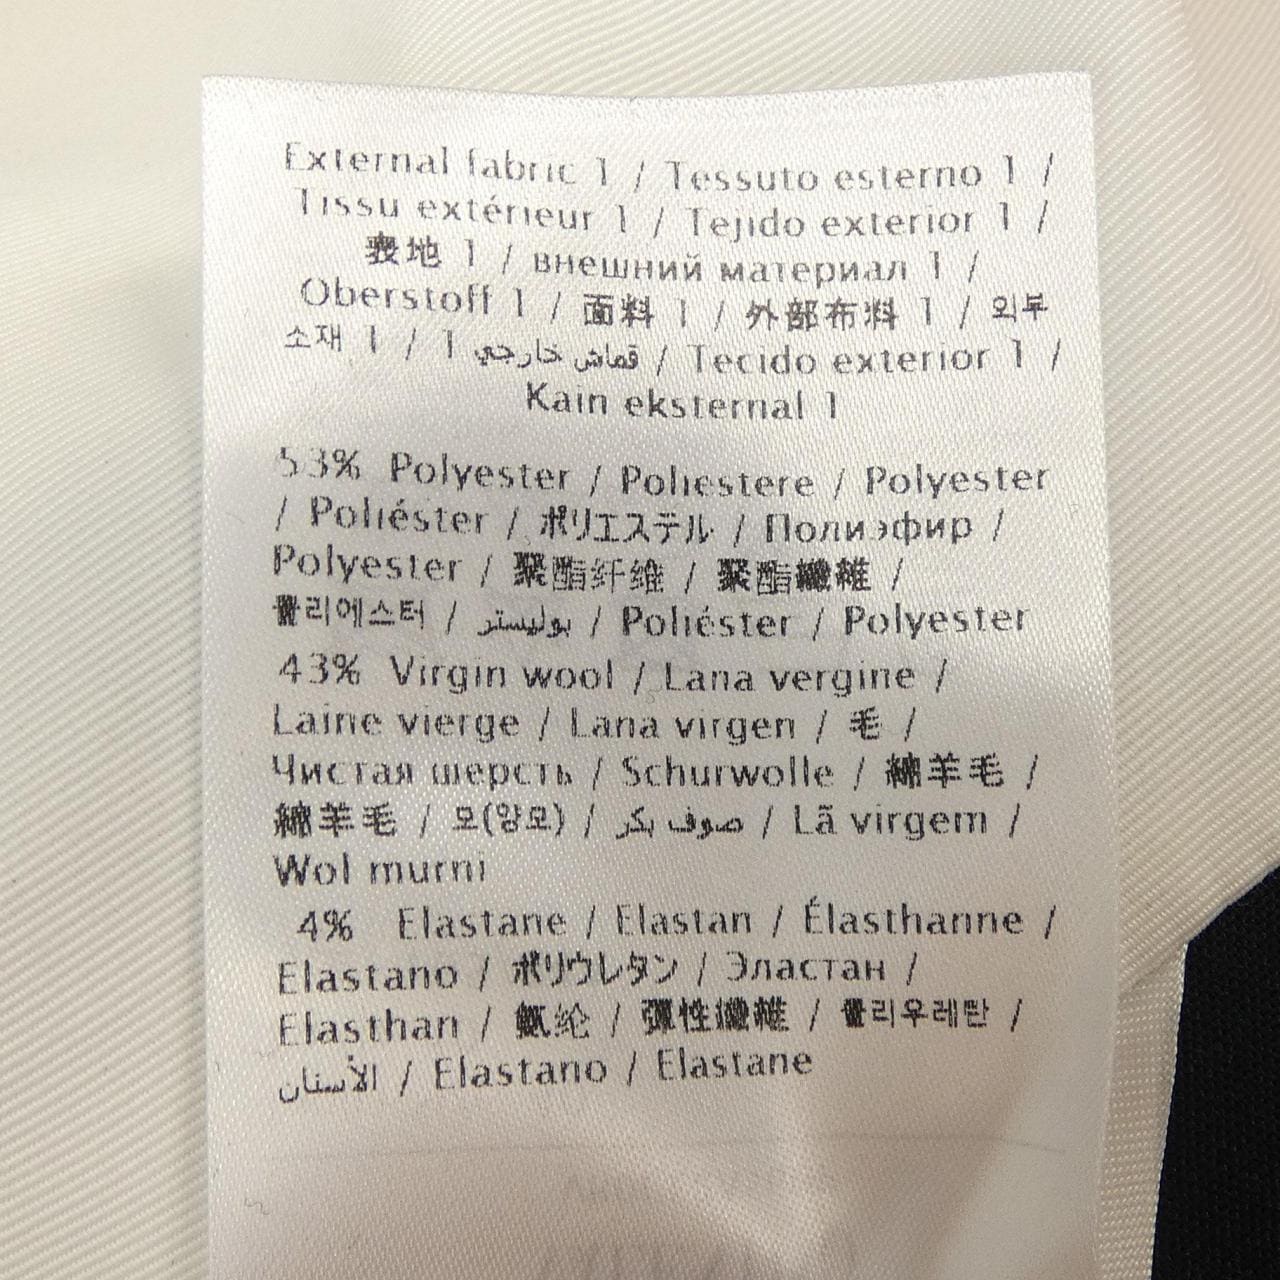 External fabric 1 / Tessuto esterno 1 /
Tissu extérieur 1 / Tejido exterior 1 /
表地 1 / внешний материал 1 /
Oberstoff 1 / 面料 1 / 外部布料 1 / 외부
소재 1 / قماش خارجي 1 / Tecido exterior 1 /
Kain eksternal 1
53% Polyester / Poliestere / Polyester
/ Poliéster / ポリエステル / Полиэфир /
Polyester / 聚酯纤维 / 聚酯纖維 /
폴리에스터 / بوليستر / Poliéster / Polyester
43% Virgin wool / Lana vergine /
Laine vierge / Lana virgen / 毛 /
Чистая шерсть / Schurwolle / 綿羊毛 /
綿羊毛 / 모(양모) / صوف بكر / Lã virgem /
Wol murni
4% Elastane / Elastan / Élasthanne /
Elastano / ポリウレタン / Эластан /
Elasthan / 氨纶 / 彈性纖維 / 폴리우레탄 /
الأستان / Elastano / Elastane